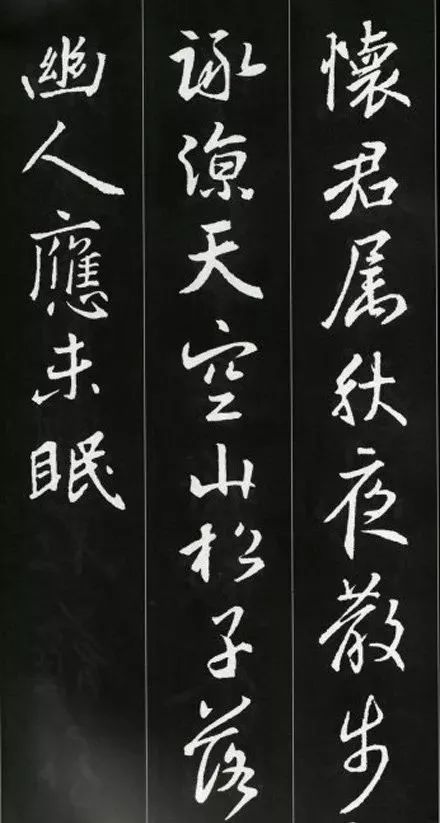 懷君属秋夜散步
詠凉天空山松子落
幽人應未眠